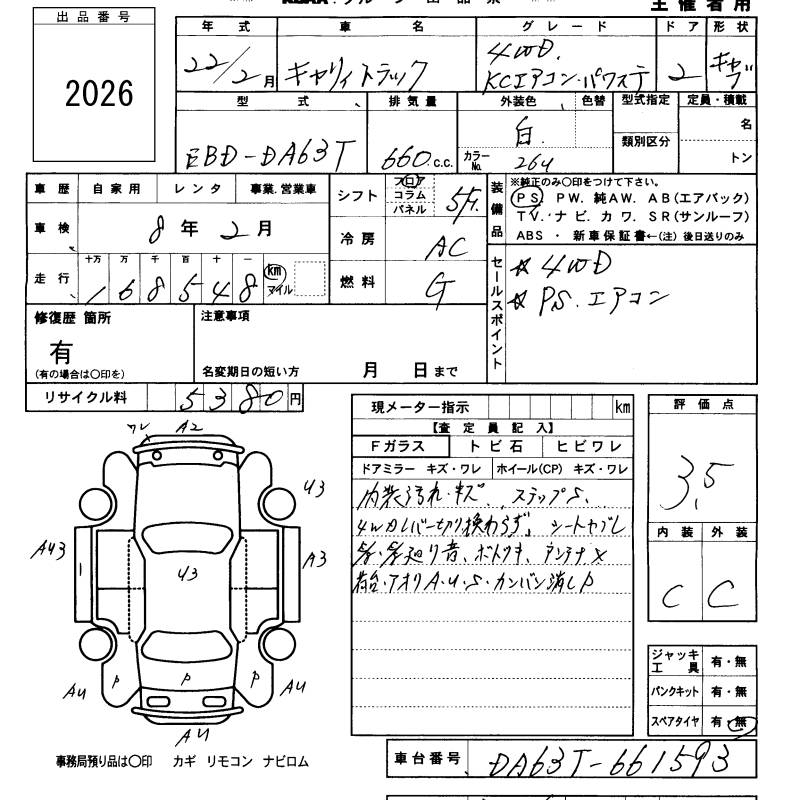 主催者用
出品番号
2026
年式 車名 グレード ドア 形状
22/2月 キャリイトラック 4WD. KCエアコン・パワステ 2 キャブ
型式 排気量 外装色 色替 型式指定 定員・積載
類別区分
名
EBD-DA63T 660c.c. 白 カラーNo. 26U
トン
車歴 自家用 レンタ 事業.営業車
シフト フロア コラム パネル 5/F.
装備品
※純正のみ○印をつけて下さい。
PS. PW. 純AW. AB(エアバック)
TV. ナビ. カワ. SR(サンルーフ)
ABS ・ 新車保証書←(注) 後日送りのみ
車検 8年2月
冷房 AC
走行 十万 万 千 百 十 一
168548 km マイル
燃料 G
セールスポイント
☆ 4WD
☆ PS. エアコン
修復歴 箇所
有
(有の場合は○印を)
注意事項
名変期日の短い方 月 日まで
リサイクル料 5380円
現メーター指示 km
【査定員記入】
Fガラス トビ石 ヒビワレ
ドアミラー キズ・ワレ ホイール(CP) キズ・ワレ
内装汚れ・キズ、ステップS、
4WDレバー切り換わらず、シートヤブレ
廻り音、ボトツキ、アンテナ×
荷台・アオリA・U・S・カンバン消しP
評価点
3.5
内装 外装
C C
ワレ A2
U3
AU3
A3
U3
AU P P P AU
AU
ジャッキ工具 有・無
パンクキット 有・無
スペアタイヤ 有・無
事務局預り品は○印 カギ リモコン ナビロム
車台番号 DA63T-661593